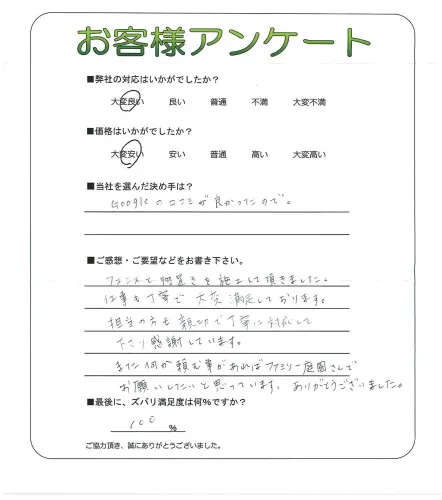 お客様アンケート
■弊社の対応はいかがでしたか？
大変良い　良い　普通　不満　大変不満
■価格はいかがでしたか？
大変安い　安い　普通　高い　大変高い
■当社を選んだ決め手は？
Googleの口コミが良かったので。
■ご感想・ご要望などをお書き下さい。
フェンスと物置きを施工して頂きました。
仕事も丁寧で大変満足しております。
担当の方も親切で丁寧に対応して
下さり感謝しています。
また何か頼む事があればファミリー庭園さんで
お願いしたいと思っています。ありがとうございました。
■最後に、ズバリ満足度は何%ですか？
100 %
ご協力頂き、誠にありがとうございました。